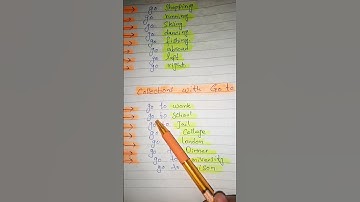 go shopping
go running
go skiing
go dancing
go fishing
go abroad
go left
go right
Collections with Go to
go to work
go to school
go to Jail
go College
go London
go Dinner
go to
go to